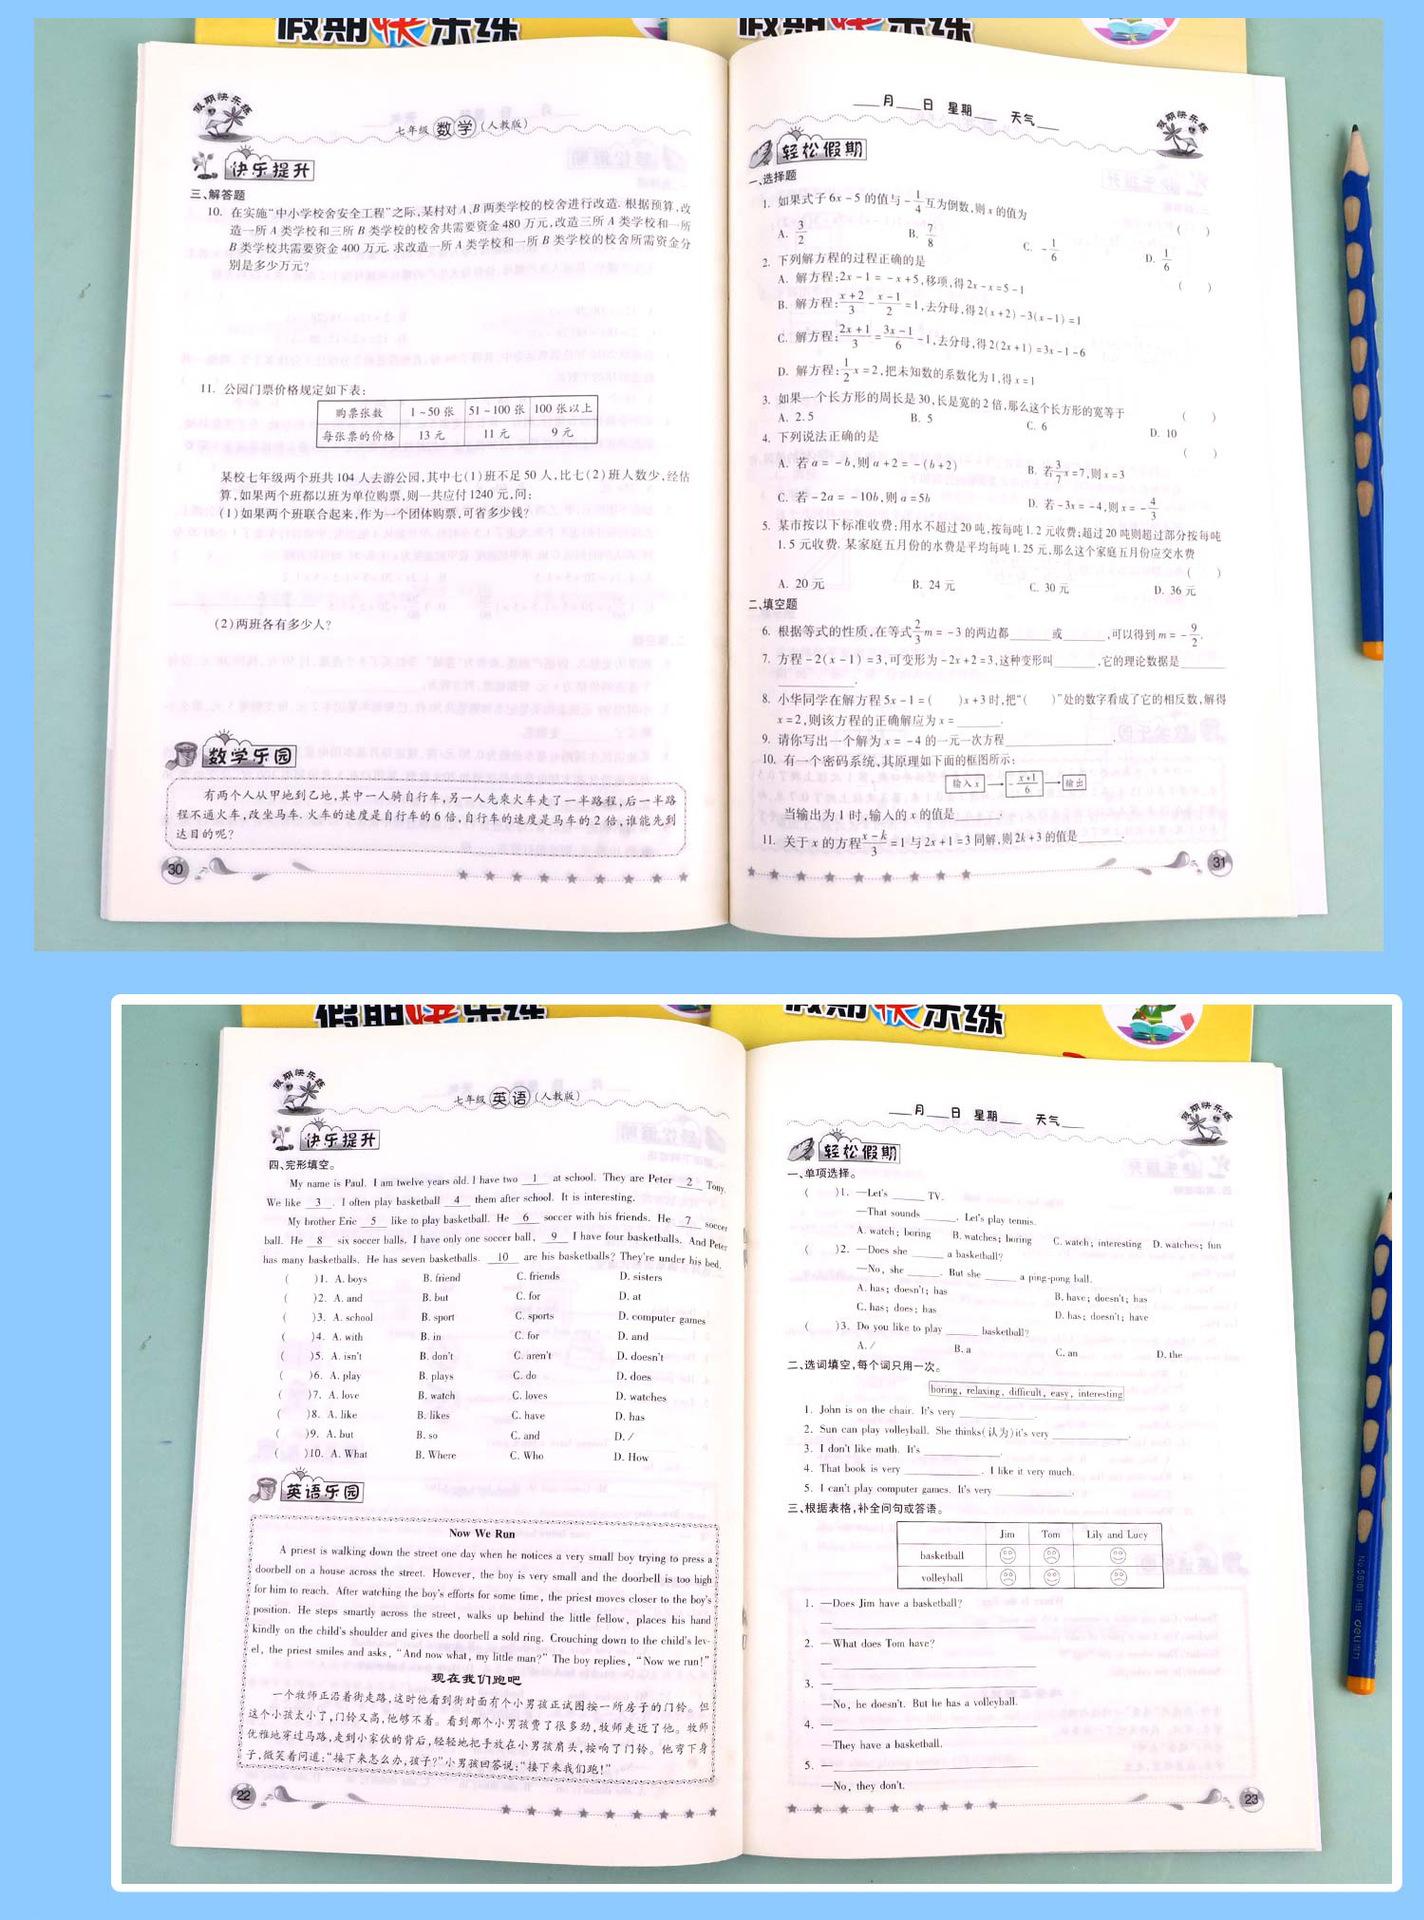 假期快乐练
假期快乐练
假期快乐练
七年级 数学 (人教版)
快乐提升
三、解答题
10. 在实施“中小学校舍安全工程”之际,某村对A、B两类学校的校舍进行改造. 根据预算,改
造一所A类学校和三所B类学校的校舍共需要资金480万元,改造三所A类学校和一所
B类学校共需要资金400万元. 求改造一所A类学校和一所B类学校的校舍所需资金分
别是多少万元?
11. 公园门票价格规定如下表:
购票张数 1~50张 51~100张 100张以上
每张票的价格 13元 11元 9元
某校七年级两个班共104人去游公园,其中七(1)班不足50人,比七(2)班人数少,经估
算,如果两个班都以班为单位购票,则一共应付1240元,问:
(1)如果两个班联合起来,作为一个团体购票,可省多少钱?
(2)两班各有多少人?
数学乐园
有两个人从甲地到乙地,其中一人骑自行车,另一人先乘火车走了一半路程,后一半路
程不通火车,改坐马车. 火车的速度是自行车的6倍,自行车的速度是马车的2倍,谁能先到
达目的呢?
30
___月___日 星期___ 天气___
假期快乐练
轻松假期
一、选择题
1. 如果式子6x-5的值与-1/4互为倒数,则x的值为 ( )
A. 3/2 B. 7/8 C. -1/6 D. 1/6
2. 下列解方程的过程正确的是 ( )
A. 解方程:2x-1=-x+5,移项,得2x-x=5-1
B. 解方程:(x+2)/3-(x-1)/2=1,去分母,得2(x+2)-3(x-1)=1
C. 解方程:(2x+1)/3=(3x-1)/6-1,去分母,得2(2x+1)=3x-1-6
D. 解方程:1/2x=2,把未知数的系数化为1,得x=1
3. 如果一个长方形的周长是30,长是宽的2倍,那么这个长方形的宽等于 ( )
A. 2.5 B. 5 C. 6 D. 10
4. 下列说法正确的是 ( )
A. 若a=-b,则a+2=-(b+2) B. 若3/7x=7,则x=3
C. 若-2a=-10b,则a=5b D. 若-3x=-4,则x=-4/3
5. 某市按以下标准收费:用水不超过20吨,按每吨1.2元收费;超过20吨则超过部分按每吨
1.5元收费. 某家庭五月份的水费是平均每吨1.25元,那么这个家庭五月份应交水费
( )
A. 20元 B. 24元 C. 30元 D. 36元
二、填空题
6. 根据等式的性质,在等式2/3m=-3的两边都______或______,可以得到m=-9/2.
7. 方程-2(x-1)=3,可变形为-2x+2=3,这种变形叫______,它的理论数据是______
____________.
8. 小华同学在解方程5x-1=( )x+3时,把“( )”处的数字看成了它的相反数,解得
x=2,则该方程的正确解应为x=______.
9. 请你写出一个解为x=-4的一元一次方程______________.
10. 有一个密码系统,其原理如下面的框图所示:
输入x → -(x+1)/6 → 输出
当输出为1时,输入的x的值是______.
11. 关于x的方程(x-k)/3=1与2x+1=3同解,则2k+3的值是______.
31
假期快乐练
假期快乐练
假期快乐练
七年级 英语 (人教版)
快乐提升
四、完形填空。
My name is Paul. I am twelve years old. I have two 1 at school. They are Peter 2 Tony.
We like 3 . I often play basketball 4 them after school. It is interesting.
My brother Eric 5 like to play basketball. He 6 soccer with his friends. He 7 soccer
ball. He 8 six soccer balls. I have only one soccer ball, 9 I have four basketballs. And Peter
has many basketballs. He has seven basketballs. 10 are his basketballs? They're under his bed.
( )1. A. boys B. friend C. friends D. sisters
( )2. A. and B. but C. for D. at
( )3. A. school B. sport C. sports D. computer games
( )4. A. with B. in C. for D. and
( )5. A. isn't B. don't C. aren't D. doesn't
( )6. A. play B. plays C. do D. does
( )7. A. love B. watch C. loves D. watches
( )8. A. like B. likes C. have D. has
( )9. A. but B. so C. and D. /
( )10. A. What B. Where C. Who D. How
英语乐园
Now We Run
A priest is walking down the street one day when he notices a very small boy trying to press a
doorbell on a house across the street. However, the boy is very small and the doorbell is too high
for him to reach. After watching the boy's efforts for some time, the priest moves closer to the boy's
position. He steps smartly across the street, walks up behind the little fellow, places his hand
kindly on the child's shoulder and gives the doorbell a sold ring. Crouching down to the child's lev-
el, the priest smiles and asks, “And now what, my little man?” The boy replies, “Now we run!”
现在我们跑吧
一个牧师正沿着街走路,这时他看到街对面有个小男孩正试图按一所房子的门铃。但
这个小孩太小了,门铃又高,他够不着。看到那个小男孩费了很多劲,牧师走近了他。牧师
优雅地穿过马路,走到小家伙的背后,轻轻地把手放在小男孩肩头,按响了门铃。他弯下身
子,微笑着问道:“接下来怎么办,孩子?”小男孩回答说:“接下来我们跑!”
22
___月___日 星期___ 天气___
假期快乐练
轻松假期
一、单项选择。
( )1. —Let's ______ TV.
—That sounds ______. Let's play tennis.
A. watch; boring B. watches; boring C. watch; interesting D. watches; fun
( )2. —Does she ______ a basketball?
—No, she ______. But she ______ a ping-pong ball.
A. has; doesn't; has B. have; doesn't; has
C. has; does; has D. has; doesn't; have
( )3. Do you like to play ______ basketball?
A. / B. a C. an D. the
二、选词填空,每个词只用一次。
boring, relaxing, difficult, easy, interesting
1. John is on the chair. It's very ____________.
2. Sun can play volleyball. She thinks(认为)it's very ____________.
3. I don't like math. It's ____________.
4. That book is very ____________. I like it very much.
5. I can't play computer games. It's very ____________.
三、根据表格,补全问句或答语。
Jim Tom Lily and Lucy
basketball
volleyball
1. —Does Jim have a basketball?
—
2. —What does Tom have?
—
3. —
—No, he doesn't. But he has a volleyball.
4. —
—They have a basketball.
5. —
—No, they don't.
23